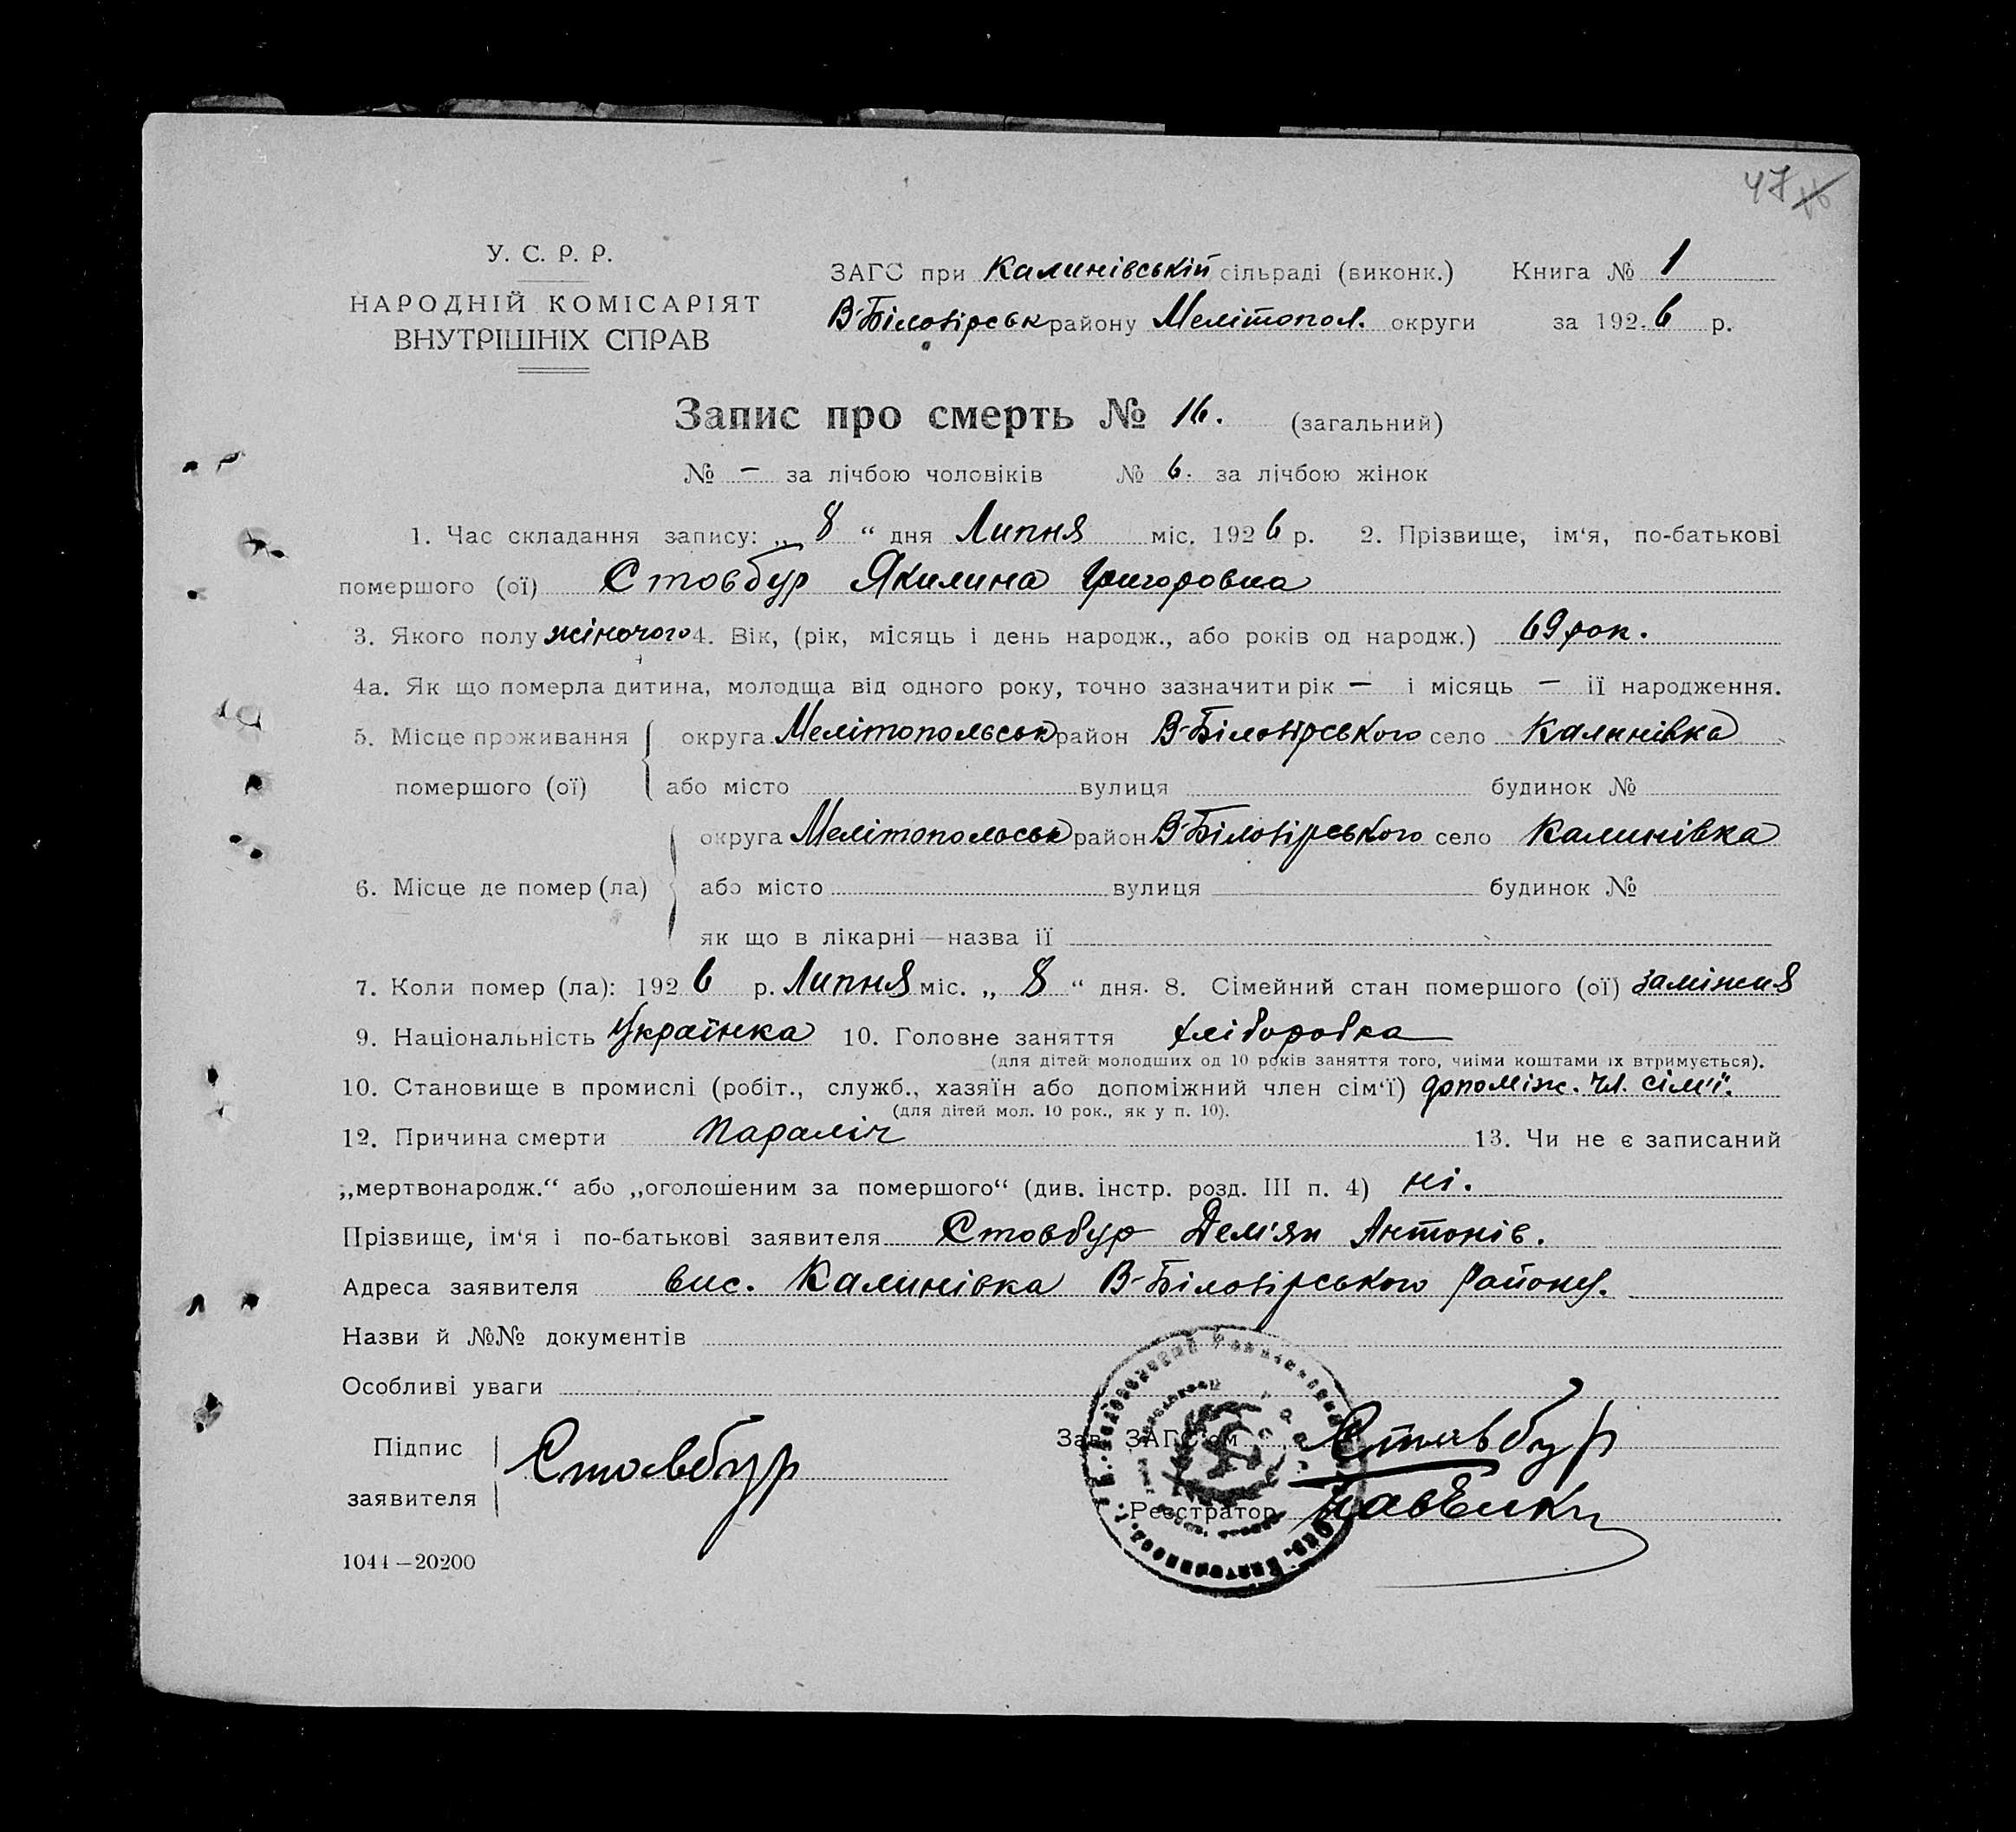 47
У. С. Р. Р.
НАРОДНІЙ КОМІСАРІЯТ
ВНУТРІШНІХ СПРАВ
ЗАГС при Калинівській сільраді (виконк.) Книга № 1
В-Білозірськ району Мелітопол. округи за 192 6 р.
Запис про смерть № 16. (загальний)
№ — за лічбою чоловіків № 6. за лічбою жінок
1. Час складання запису: „ 8 “ дня Липня міс. 192 6 р. 2. Прізвище, ім‘я, по-батькові
помершого (ої) Стовбур Якилина Григоровна
3. Якого полу жіночого 4. Вік, (рік, місяць і день народж., або років од народж.) 69 рок.
4а. Як що померла дитина, молодща від одного року, точно зазначити рік — і місяць — її народження.
5. Місце проживання округа Мелітопольськ район В-Білозірського село Калинівка
помершого (ої) або місто вулиця будинок №
округа Мелітопольськ район В-Білозірського село Калинівка
6. Місце де помер (ла) або місто вулиця будинок №
як що в лікарні—назва її
7. Коли помер (ла): 192 6 р. Липня міс. „ 8 “ дня. 8. Сімейний стан помершого (ої) заміжня
9. Національність Українка 10. Головне заняття хліборобка
(для дітей молодших од 10 років заняття того, чиїми коштами їх втримується).
10. Становище в промислі (робіт., служб., хазяїн або допоміжний член сім‘ї) допоміж. чл. сім'ї.
(для дітей мол. 10 рок., як у п. 10).
12. Причина смерти Параліч 13. Чи не є записаний
„мертвонародж.“ або „оголошеним за помершого“ (див. інстр. розд. III п. 4) ні.
Прізвище, ім‘я і по-батькові заявителя Стовбур Дем'ян Антонів.
Адреса заявителя вис. Калинівка В-Білозірського району.
Назви й №№ документів
Особливі уваги
Підпис
заявителя Стовбур
Зав. ЗАГС‘ом Стовбур
Реєстратор
1044—20200